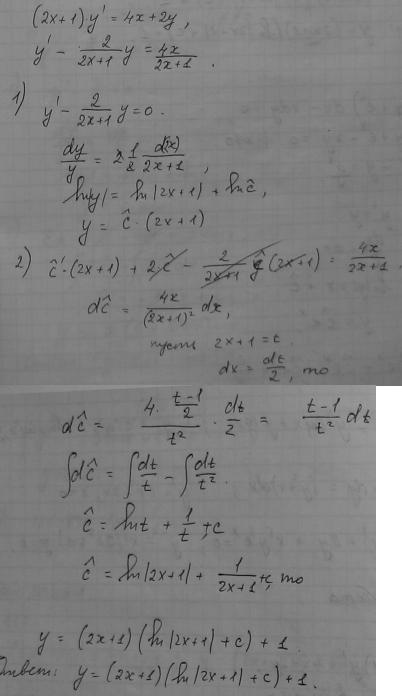 (2x+1)·y' = 4x+2y,
y' - 2/(2x+1) y = 4x/(2x+1).
1) y' - 2/(2x+1) y = 0.
dy/y = 2·1/2 d(2x)/(2x+1),
ln|y| = ln|2x+1| + ln ĉ,
y = ĉ·(2x+1)
2) ĉ'·(2x+1) + 2ĉ - 2/(2x+1) ĉ(2x+1) = 4x/(2x+1),
dĉ = 4x/(2x+1)² dx,
пусть 2x+1 = t.
dx = dt/2, то
dĉ = (4·(t-1)/2)/t² · dt/2 = (t-1)/t² dt
∫dĉ = ∫dt/t - ∫dt/t².
ĉ = ln t + 1/t + c
ĉ = ln|2x+1| + 1/(2x+1) + c, то
y = (2x+1)(ln|2x+1| + c) + 1.
Ответ: y = (2x+1)(ln|2x+1| + c) + 1.